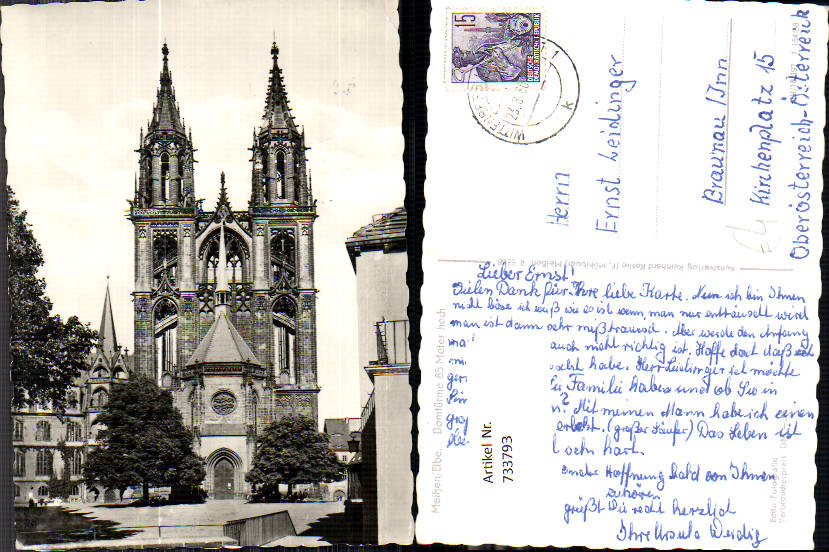 15
DEUTSCHE DEMOKRATISCHE REPUBLIK
WITTENBERGE 1
k
Herrn
Ernst Leidinger
Braunau / Inn
Kirchenplatz 15
Oberösterreich-Österreich
Kunstverlag Reinhard Rothe (F. Möhlbach) Meißen
Meißen/Elbe. Domtürme 85 Meter hoch
Artikel Nr.
733793
Echte Fotografie
Verbraucherpreis
Lieber Ernst!
Vielen Dank für Ihre liebe Karte. Nein ich bin Ihnen
nicht böse ich weiß wie es ist, wenn man nur enttäuscht wird
man ist dann sehr mißtrauisch. Aber werde den Anfang
auch nicht richtig ist. Hoffe doch daß
habe. Herr Leidinger ich möchte
Familie haben und ob Sie in
? Mit meinen Mann habe ich einen
erlebt. (großer Säufer) Das Leben ist
hart.
Hoffnung bald von Ihnen
zu hören
grüßt Sie recht herzlich
Ihre Ursula Weidig